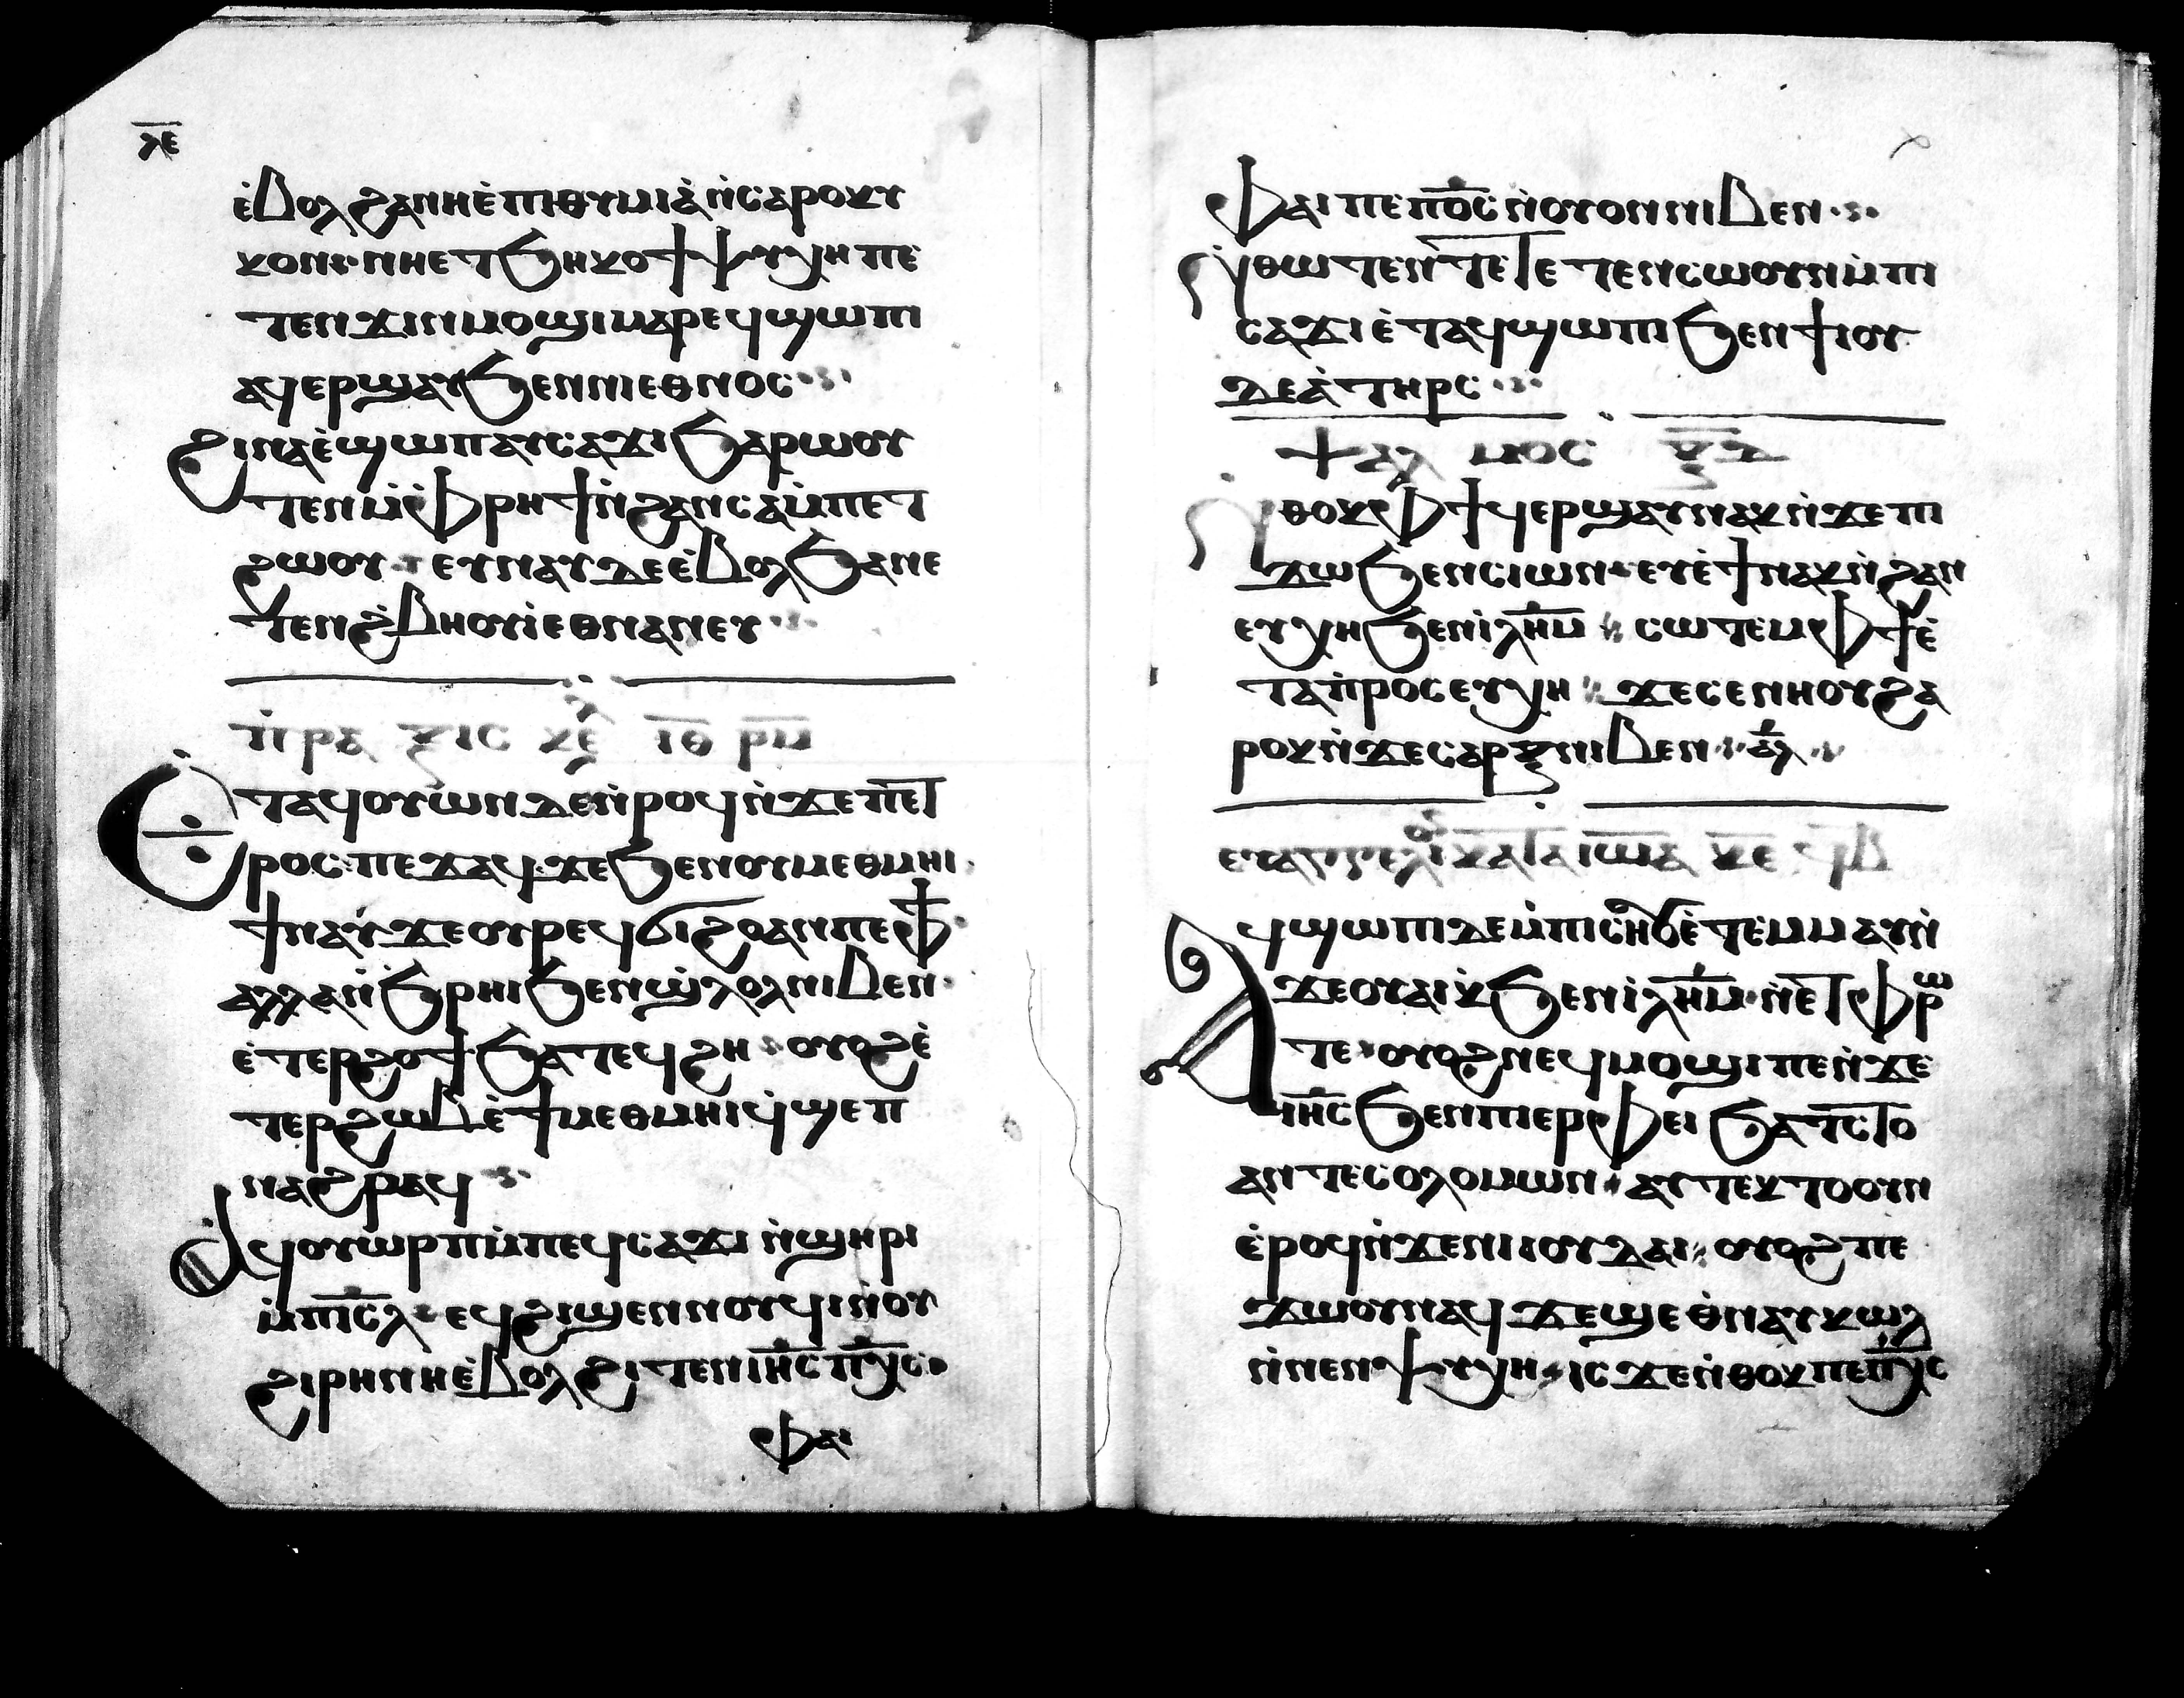 ⲗⲉ
ⲉ̀ⲃⲟⲗϩⲁⲛⲏⲉ̀ⲡⲓⲑⲩⲙⲓⲁ̀ⲛ̀ⲥⲁⲣⲟⲕⲩ
ⲕⲟⲛ·ⲛⲏⲉⲧϧⲏⲕⲟϯⲯⲩⲭⲏ ⲡⲉ
ⲧⲉⲛϫⲓⲛⲙⲟϣⲓⲙⲁⲣⲉϥϣⲱⲡⲓ
ⲁϥⲉⲣϣⲁⲩϧⲉⲛⲛⲓⲉⲑⲛⲟⲥ
ϩⲓⲛⲁⲉ̀ϣⲱⲡⲁⲩⲥⲁϫⲓϧⲁⲣⲱⲟⲩ
ⲧⲉⲛⲙ̀ⲫⲣⲏϯⲛ̀ϩⲁⲛⲥⲁⲙ̀ⲡⲉⲧ
ϩⲱⲟⲩ ⲉⲩⲛⲁⲩⲇⲉⲉ̀ⲃⲟⲗϧⲁⲛⲉ
ⲧⲉⲛϩ̀ⲃⲏⲟⲩⲓ̀ⲉⲑⲛⲁⲛⲉⲩ
ⲡ̀ⲣⲁ ⲝⲓⲥ ⲕⲉ ⲓ̅ⲑ̅ ⲣⲙ
ⲉⲧⲁϥⲟⲩⲱⲛⲇⲉⲛ̀ⲣⲟϥⲛ̀ϫⲉⲡⲉⲧ
ⲣⲟⲥ·ⲡⲉϫⲁϥ·ϫⲉϧⲉⲛⲟⲩⲙⲉⲑⲙⲏⲓ
ϯⲛⲁⲩϫⲉⲟⲩⲣⲉϥϭⲓϩⲟⲁⲛⲡⲉⲫϯ
ⲁⲗⲗⲁⲛ̀ϧⲣⲏⲓϧⲉⲛϣ̀ⲗⲟⲗⲛⲓⲃⲉⲛ
ⲉ̀ⲧⲉⲣϩⲟϯϧⲁⲧⲉϥϩⲏ ⲟⲩⲟϩⲉ̀
ⲧⲉⲣϩⲱⲃⲉ̀ϯⲙⲉⲑⲙⲏⲓϥ̀ϣⲉⲡ
ⲛⲁϩⲣⲁϥ
ⲁϥⲟⲩⲱⲣⲡⲙ̀ⲡⲉϥⲥⲁϫⲓ ⲛ̀ϣⲏⲣⲓ
ⲙ̀ⲡⲓⲥ̅ⲗ̅ ⲉϥϩⲓϣⲉⲛⲛⲟⲩϥⲓⲛ̀ⲟⲩ
ϩⲓⲣⲏⲛⲏⲉ̀ⲃⲟⲗϩⲓⲧⲉⲛⲓⲏ̅ⲥ̅ ⲡⲭ̅ⲥ̅
ⲫⲁⲓ
ⲫⲁⲓⲡⲉⲡⲟ̅ⲥ̅ⲛ̀ⲟⲩⲟⲛⲛⲓⲃⲉⲛ
ⲛ̀ⲑⲱⲧⲉⲛⲧⲉⲧⲉⲧⲉⲛⲥⲱⲟⲩⲛⲙ̀ⲡⲓ
ⲥⲁϫⲓⲉ̀ⲧⲁϥϣⲱⲡⲓϧⲉⲛϯⲓⲟⲩ
ⲇⲉⲁ̀ⲧⲏⲣⲥ
ⲯⲁⲗ ⲙⲟⲥ ⲝ̅ⲇ̅
ⲛ̀ⲑⲟⲕⲫϯϥⲉⲣϣⲁⲩⲛⲁⲕⲛ̀ϫⲉⲡⲓ
ϫⲱϧⲉⲛⲥⲓⲱⲛ·ⲉⲩⲉ̀ϯⲛⲁⲕⲛ̀ϩⲁⲛ
ⲉⲩⲭⲏϧⲉⲛⲓ̀ⲗ̅ⲏ̅ⲙ̅ ⲥⲱⲧⲉⲙⲫϯⲉ̀
ⲧⲁⲡ̀ⲣⲟⲥⲉⲩⲭⲏ ϫⲉⲥⲉⲛⲏⲟⲩϩⲁ
ⲣⲟⲕⲛ̀ϫⲉⲥⲁⲣⲝⲛⲓⲃⲉⲛ ⲁ̅ⲗ̅
ⲉⲩⲁⲅⲅⲉⲗⲓ ⲕⲁⲧⲁ ⲓⲱⲁ ⲕⲉ ϥ̅ⲃ̅
ⲁϥϣⲱⲡⲓⲇⲉⲙ̀ⲡⲓⲥⲏⲟⲩⲉ̀ⲧⲉⲙⲙⲁⲩⲛ̀
ϫⲉⲟⲩⲁⲓⲕϧⲉⲛⲓ̀ⲗ̅ⲏ̅ⲙ̅·ⲛⲉⲧⲫⲣⲱ
ⲧⲉ·ⲟⲩⲟϩⲛⲉϥⲙⲟϣⲓⲡⲉⲛ̀ϫⲉ
ⲓⲏ̅ⲥ̅ϧⲉⲛⲡⲓⲉⲣⲫⲉⲓ ϧⲁⲧⲥⲧⲟ
ⲁⲛⲧⲉⲥⲟⲗⲟⲙⲱⲛ·ⲁⲩⲧⲉⲕⲧⲟⲟⲩⲛ
ⲉ̀ⲣⲟϥⲛ̀ϫⲉⲛⲓⲓⲟⲩⲇⲁⲓ ⲟⲩⲟϩⲡⲉ
ϫⲱⲟⲩⲛⲁϥ ϫⲉϣⲉⲑ̀ⲛⲁⲩⲕⲱⲗ
ⲛ̀ⲛⲉⲛⲯⲩⲭⲏ·ⲓⲥϫⲉⲛ̀ⲑⲟⲕⲡⲉⲡⲭ̅ⲥ̅